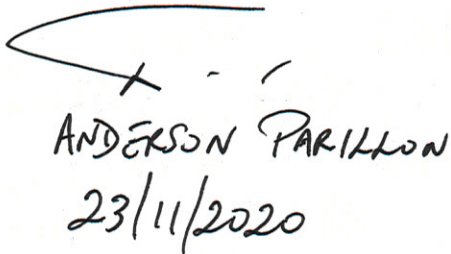 ANDERSON PARILLON
23/11/2020